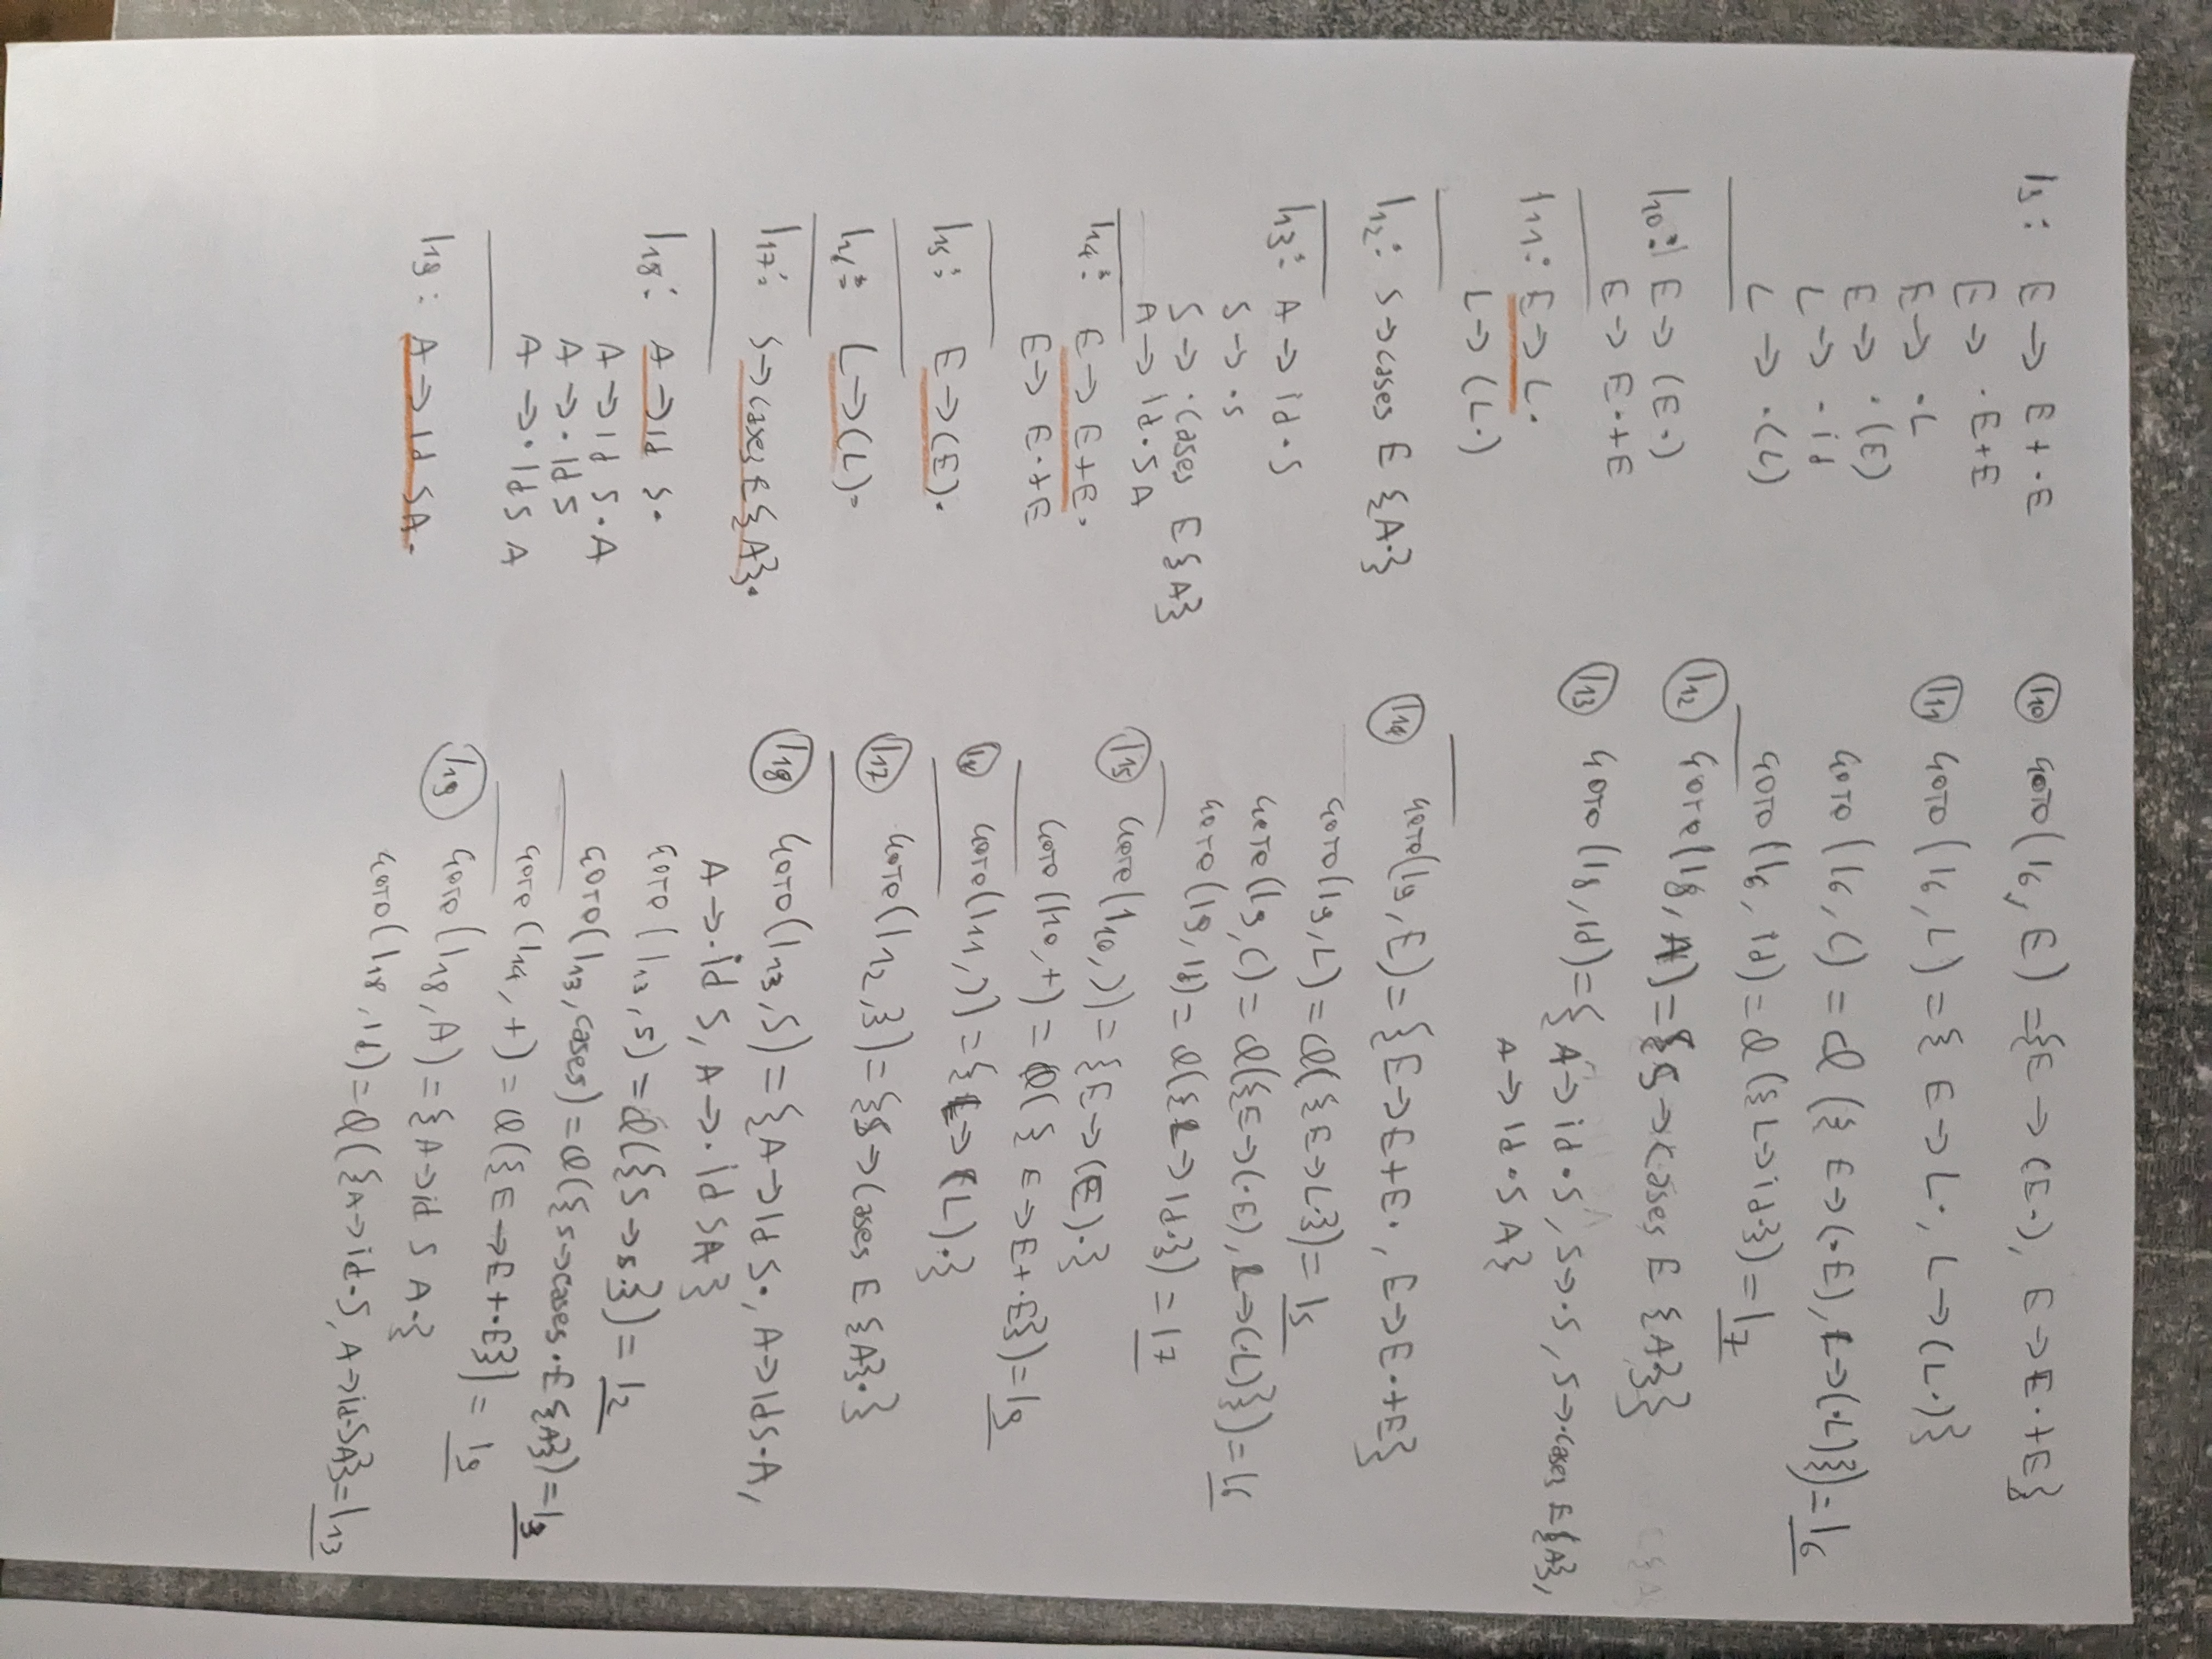 I9: E → E + · E
E → · E + E
E → · L
E → · (E)
L → · id
L → · (L)
I10: E → (E·)
E → E·+E
I11: E → L·
L → (L·)
I12: S → cases E {A·}
I13: A → id · S
S → · s
S → · cases E {A}
A → id · S A
I14: E → E+E·
E → E·+E
I15: E → (E)·
I16: L → (L)·
I17: S → cases E {A}·
I18: A → id S·
A → id S·A
A → · id S
A → · id S A
I19: A → id S A·
I10 GOTO(I6, E) = {E → (E·), E → E·+E}
I11 GOTO(I6, L) = {E → L·, L → (L·)}
GOTO(I6, () = Cl({E → (·E), L → (·L)}) = I6
GOTO(I6, id) = Cl({L → id·}) = I7
I12 GOTO(I8, A) = {S → cases E {A·}}
I13 GOTO(I8, id) = {A → id·S, S → ·s, S → ·cases E{A},
A → id·S A}
I14 GOTO(I9, E) = {E → E+E·, E → E·+E}
GOTO(I9, L) = Cl({E → L·}) = I5
GOTO(I9, () = Cl({E → (·E), L → (·L)}) = I6
GOTO(I9, id) = Cl({L → id·}) = I7
I15 GOTO(I10, )) = {E → (E)·}
GOTO(I10, +) = Cl({E → E+·E}) = I9
I16 GOTO(I11, )) = {L → (L)·}
I17 GOTO(I12, }) = {S → cases E {A}·}
I18 GOTO(I13, S) = {A → id S·, A → id S·A,
A → ·id S, A → ·id S A}
GOTO(I13, s) = Cl({S → s·}) = I2
GOTO(I13, cases) = Cl({S → cases·E{A}}) = I3
GOTO(I14, +) = Cl({E → E+·E}) = I9
I19 GOTO(I18, A) = {A → id S A·}
GOTO(I18, id) = Cl({A → id·S, A → id·SA}) = I13